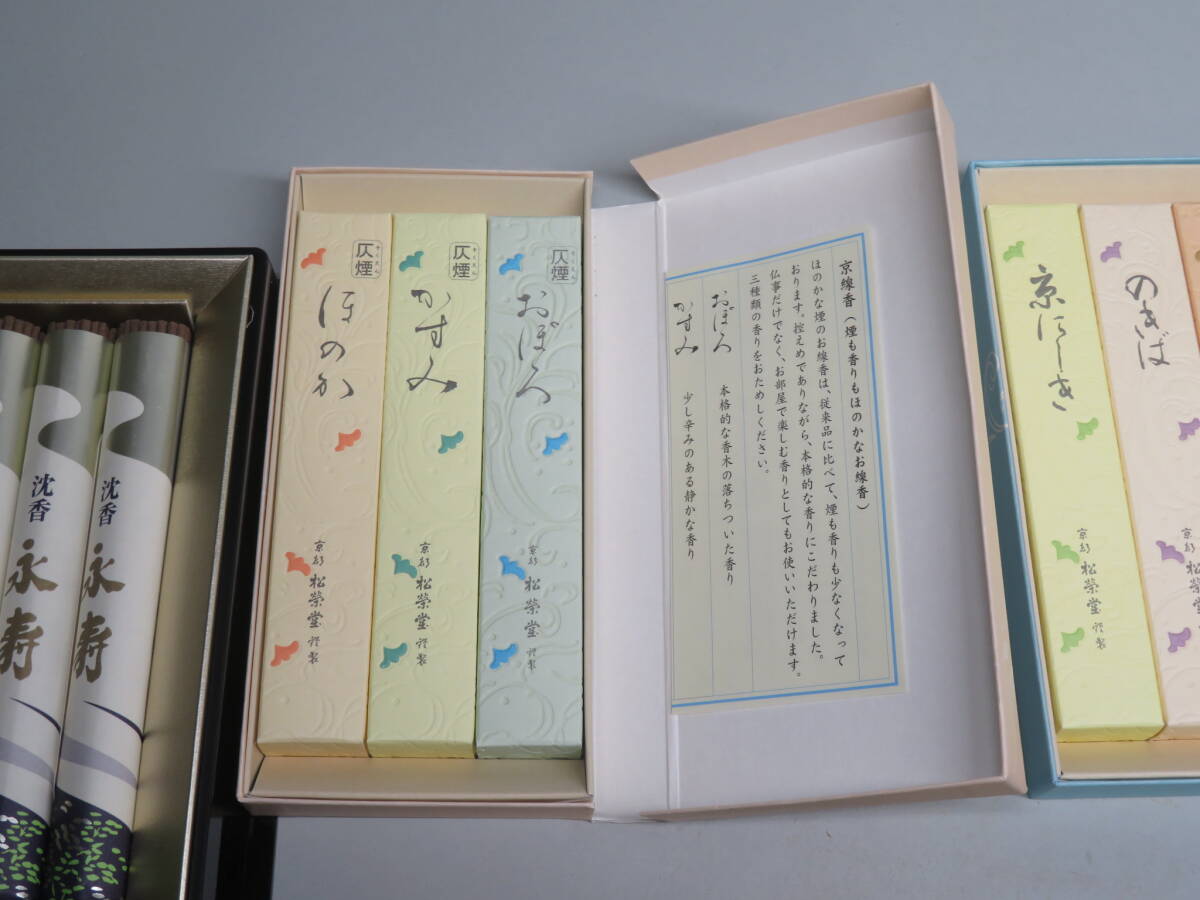 沈香
永寿
沈香
永寿
仄煙
ほのか
京都 松榮堂 謹製
仄煙
かすみ
京都 松榮堂 謹製
仄煙
おぼろ
京都 松榮堂 謹製
京線香(煙も香りもほのかなお線香)
ほのかな煙のお線香は、従来品に比べて、煙も香りも少なくなって
おります。控えめでありながら、本格的な香りにこだわりました。
仏事だけでなく、お部屋で楽しむ香りとしてもお使いいただけます。
三種類の香りをおためしください。
おぼろ 本格的な香木の落ちついた香り
かすみ 少し辛みのある静かな香り
京にしき
京都 松榮堂 謹製
のきば
京都 松榮堂